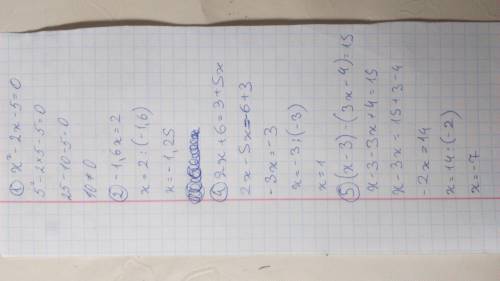 ① x² - 2x - 5 = 0
5² - 2×5 - 5 = 0
25 - 10 - 5 = 0
10 ≠ 0
② - 1,6x = 2
x = 2 : (-1,6)
x = - 1,25
④ 2x + 6 = 3 + 5x
2x - 5x = -6 + 3
- 3x = - 3
x = -3 : (-3)
x = 1
⑤ (x - 3) - (3x - 4) = 15
x - 3 - 3x + 4 = 15
x - 3x = 15 + 3 - 4
- 2x = 14
x = 14 : (-2)
x = -7